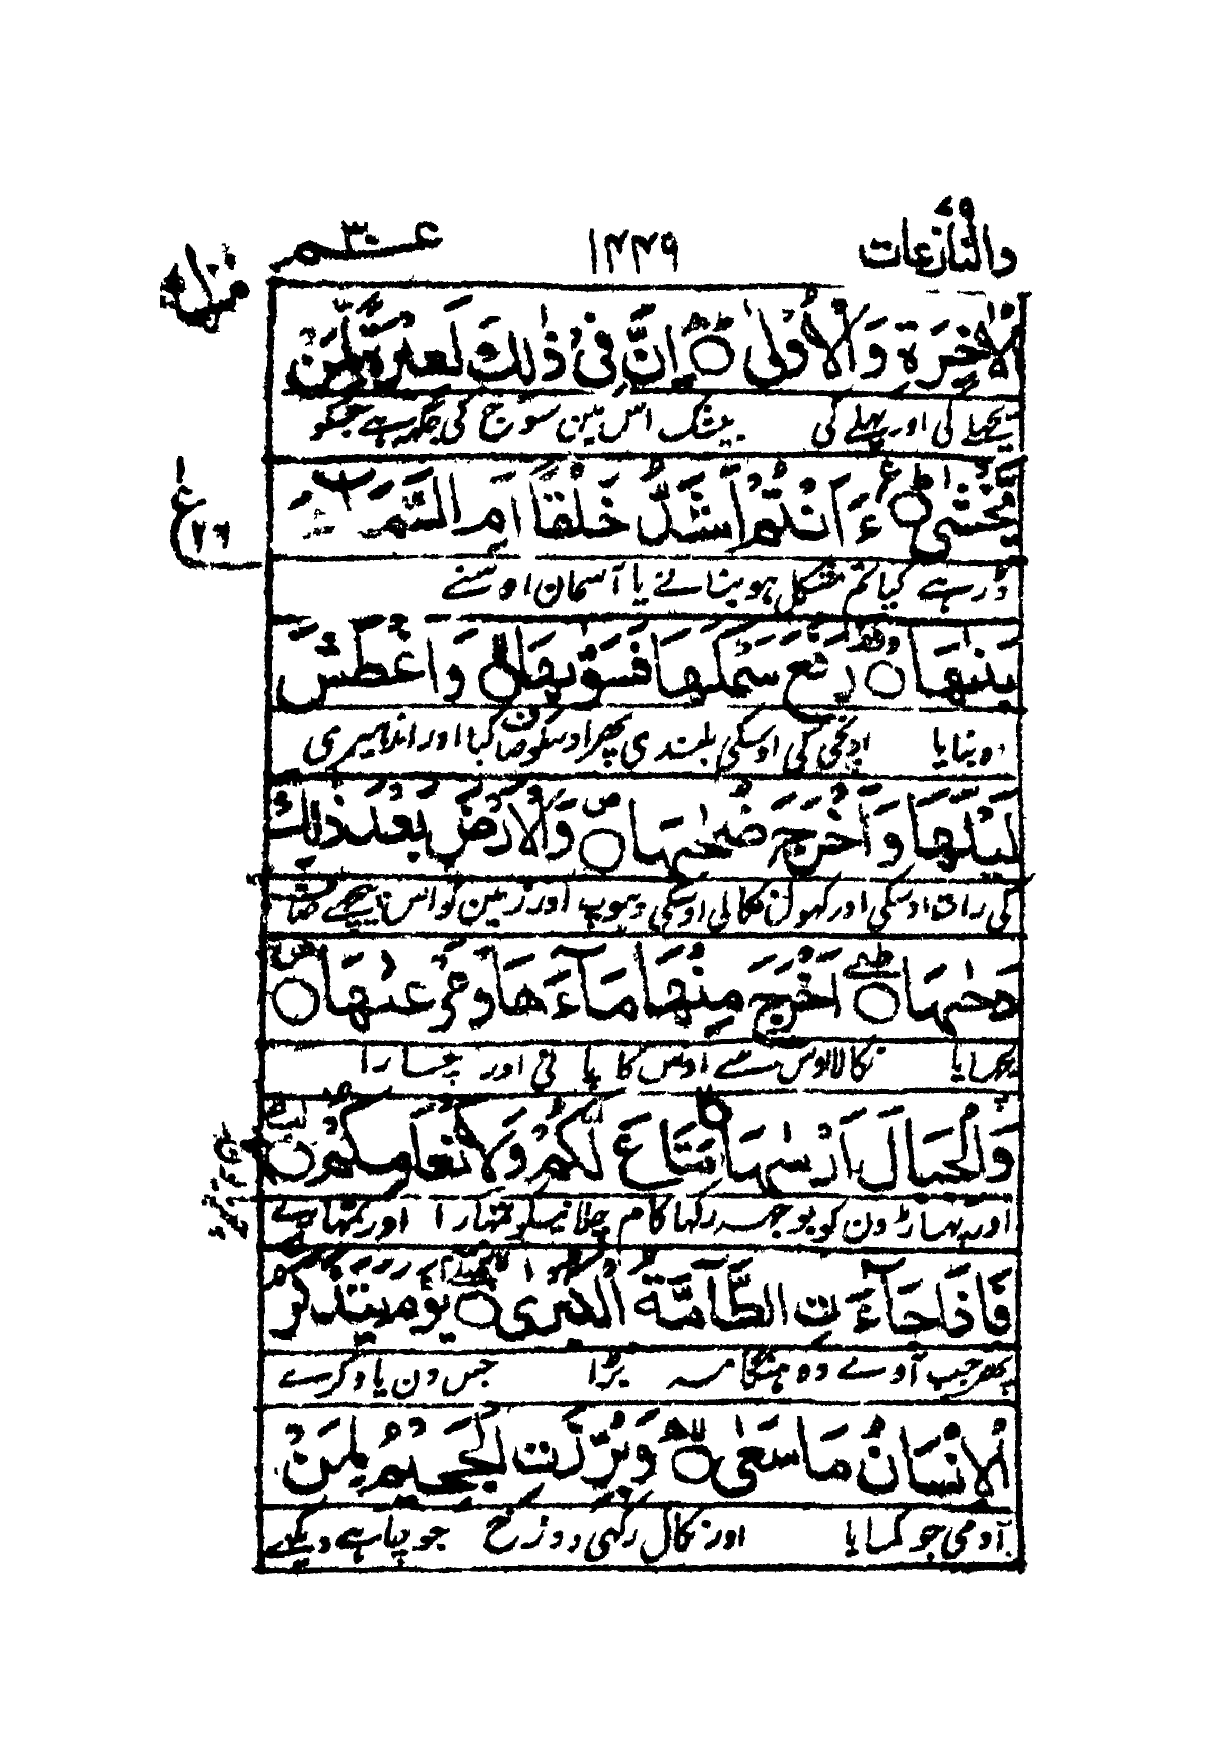 والنازعات ٧٩
١٢٣٩
عــم ٣٠
منزل
الْاٰخِرَةِ وَالْاُوْلٰى ۝ اِنَّ فِىْ ذٰلِكَ لَعِبْرَةً لِّمَنْ
پچھلے کی اور پہلے کی بیشک اس مین سوچ کی جگہہ ہے جسکو
يَّخْشٰى ۝ ءَاَنْتُمْ اَشَدُّ خَلْقًا اَمِ السَّمَآءُ
ع
٢٦
ڈر ہے کیا تم مشکل ہو بنانے یا آسمان اوسنے
بَنٰىهَا ۝ رَفَعَ سَمْكَهَا فَسَوّٰىهَا ۝ وَاَغْطَشَ
اونچی کی اوسکی بلندی پھر اوسکو صاف کیا اور اندہیری
لَيْلَهَا وَاَخْرَجَ ضُحٰىهَا ۝ وَالْاَرْضَ بَعْدَ ذٰلِكَ
کی رات اوسکی اور کھول نکالی اوسکی دہوپ اور زمین کو اس پیچھے صاف
دَحٰىهَا ۝ اَخْرَجَ مِنْهَا مَآءَهَا وَمَرْعٰىهَا ۝
بچھایا نکالا اوس سے اوس کا پانی اور چارا
وَالْجِبَالَ اَرْسٰىهَا ۝ مَتَاعًا لَّكُمْ وَلِاَنْعَامِكُمْ ۝
اور پہاڑون کو بوجہہ رکھا کام چلانیکو تمہارا اور تمہارے
فَاِذَا جَآءَتِ الطَّآمَّةُ الْكُبْرٰى ۝ يَوْمَ يَتَذَكَّرُ
پھر جب آوے وہ ہنگامہ بڑا جس دن یاد کرے
الْاِنْسَانُ مَا سَعٰى ۝ وَبُرِّزَتِ الْجَحِيْمُ لِمَنْ
آدمی جو کمایا اور نکال رکھی دوزخ جو چاہے دیکھے